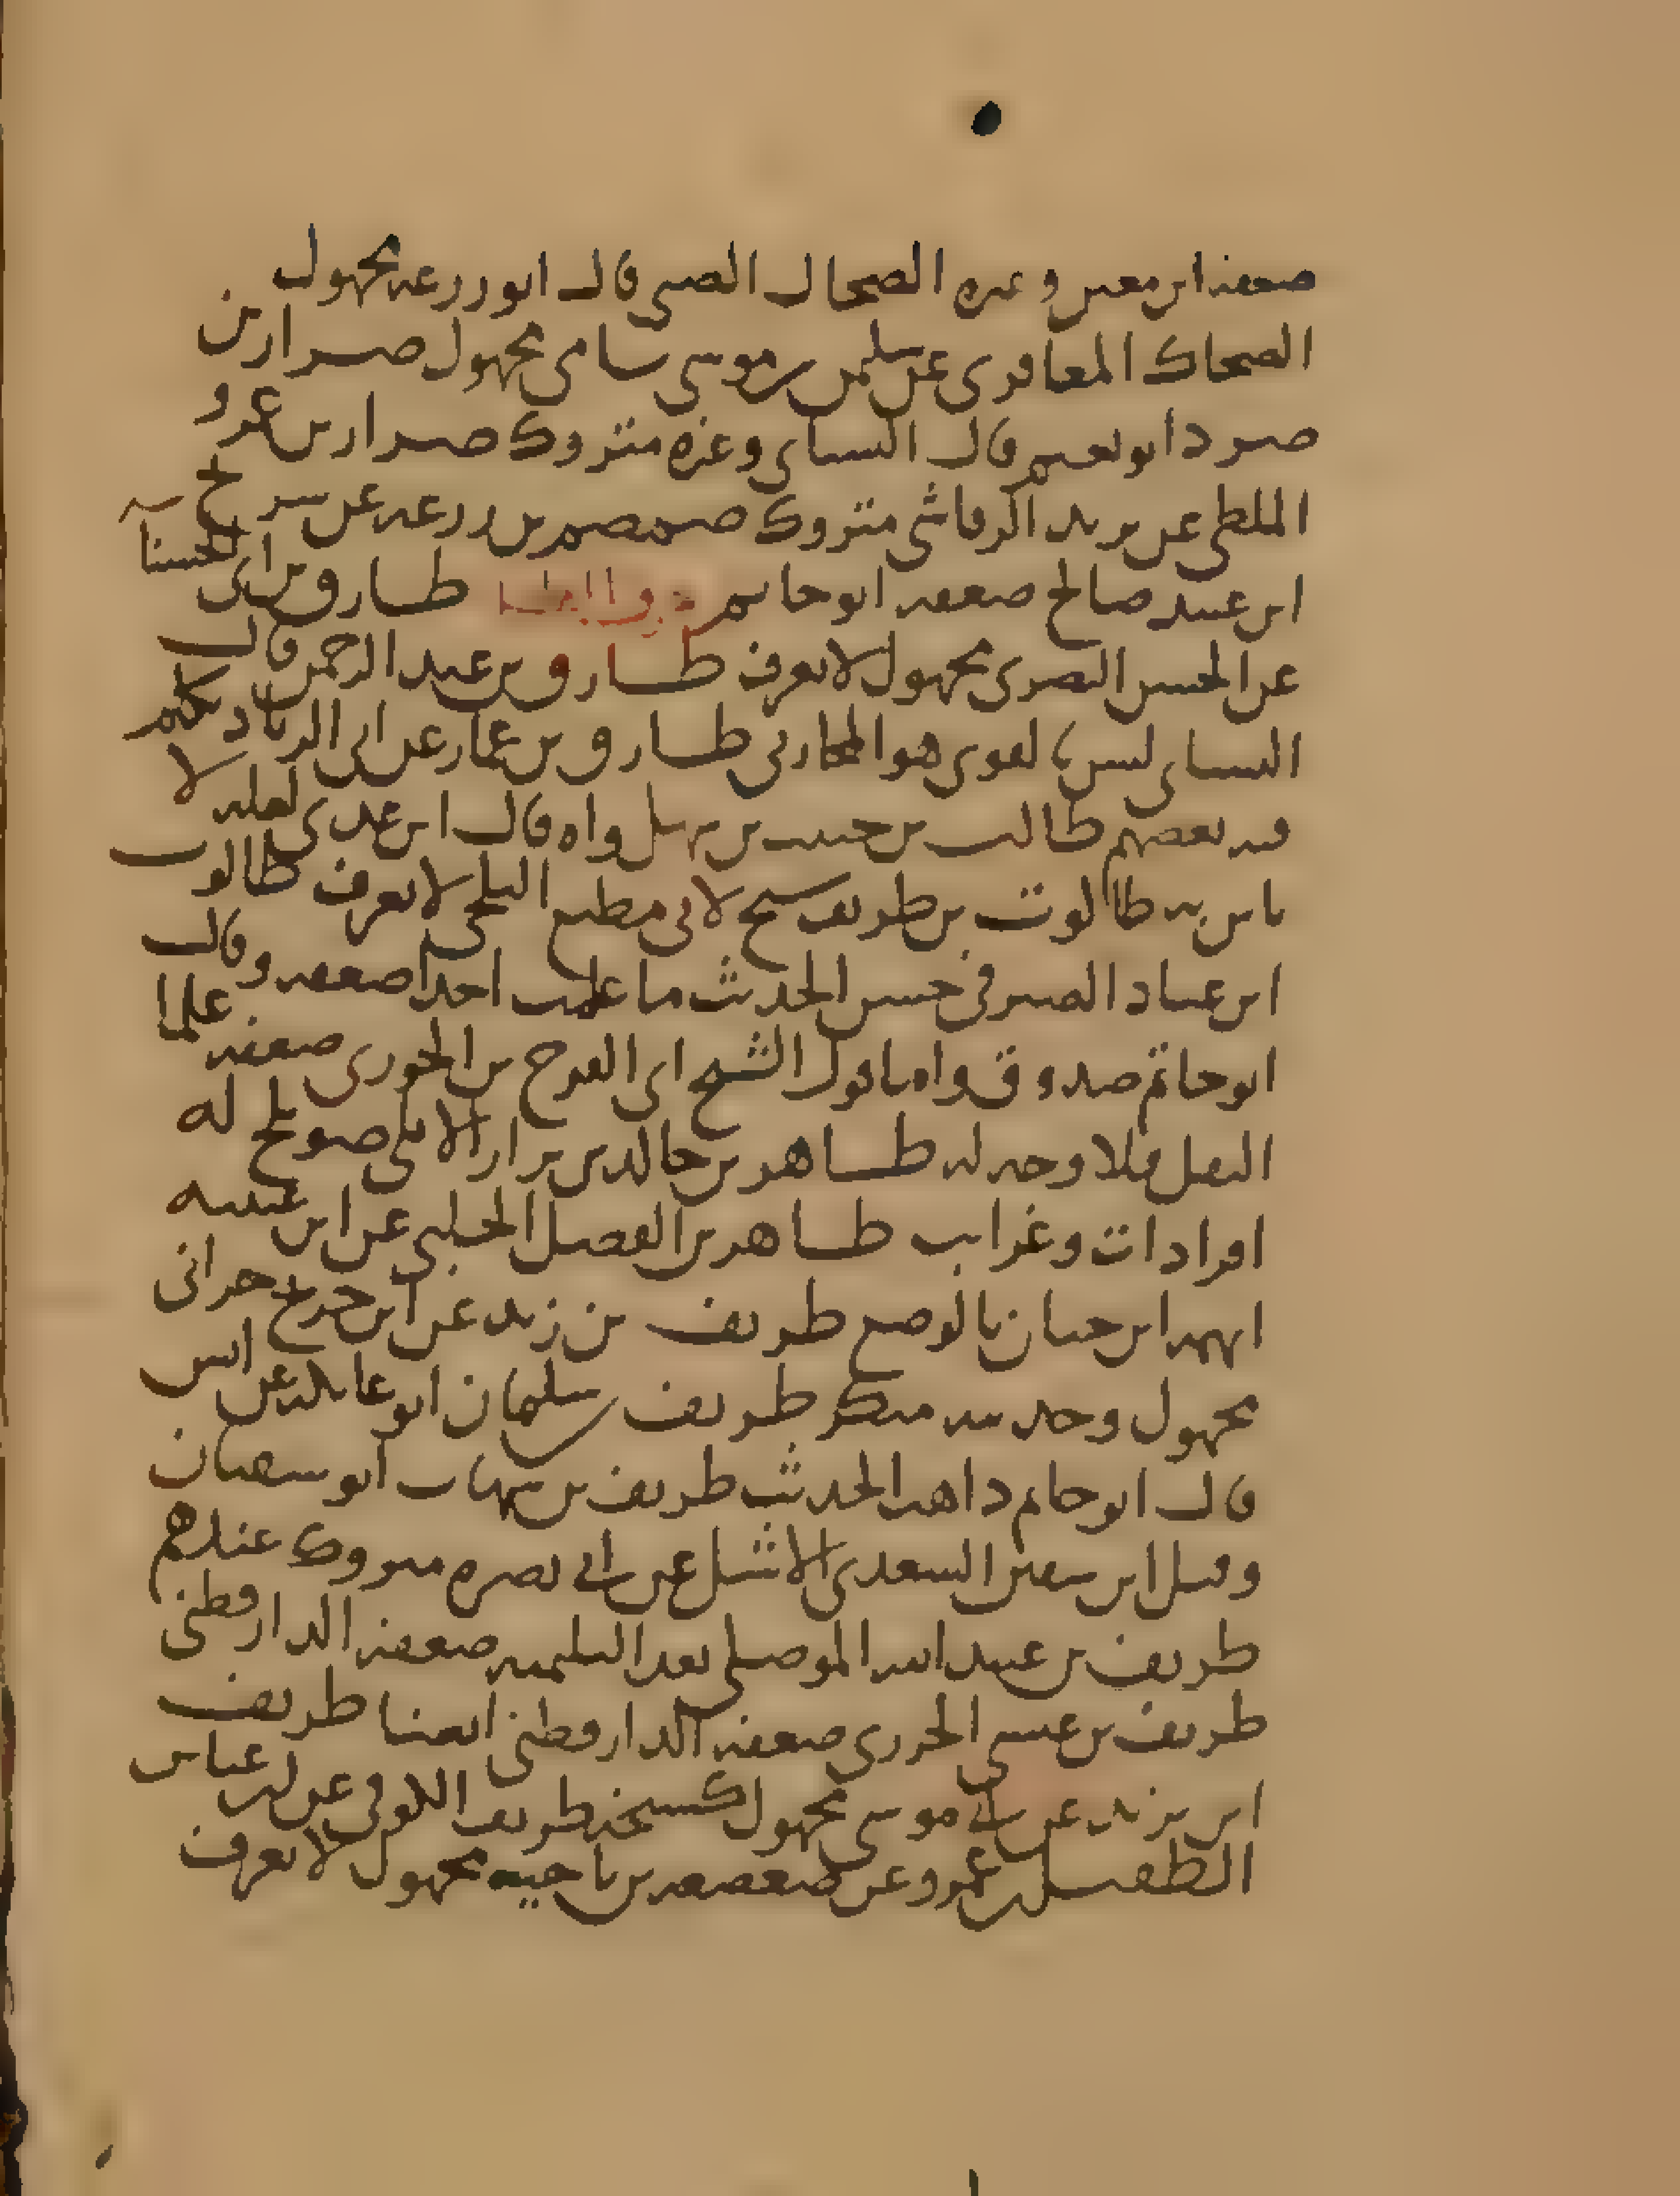 ضعفه ابن معين وغيره الضحاك الضبي قال ابو زرعه مجهول
الضحاك المعافري عن سليمن بن موسى شامي مجهول ضرار بن
صرد ابو نعيم قال النساي وغيره متروك ضرار بن عمرو
الملطي عن يزيد الرقاشي متروك ضمضم بن زرعه عن شريح
ابن عبيد صالح ضعفه ابو حاتم طارق بن ابي الحسنا
عن الحسن البصري مجهول لا يعرف طارق بن عبد الرحمن قال
النساي ليس بالقوي هو المحاربي طارق بن عمار عن ابي الزناد تكلم
فيه بعضهم طالب بن حبيب بن سهل واه قال ابن عدي لعله لا
باس به طالوت بن طريف شيخ لابي مطيع البلخي لا يعرف طالوت
ابن عباد الصيرفي حسن الحديث ما علمت احدا ضعفه وقال
ابو حاتم صدوق واما قول الشيخ ابي الفرج بن الجوزي ضعفه علما
النقل فلا وجه له طاهر بن خالد بن نزار الايلي صويلح له
افرادات وغرايب طاهر بن الفضل الحلبي عن ابن عيينه
اتهمه ابن حبان بالوضع طريف بن زيد عن ابن جريج حراني
مجهول وحديثه منكر طريف بن سلمان ابو عاتكه عن انس
قال ابو حاتم ذاهب الحديث طريف بن شهاب ابو سفيان
وقيل ابن سفين السعدي الاشل عن ابي نضره متروك عندهم
طريف بن عبيد الله الموصلي بعد الثلثميه ضعفه الدارقطني
طريف بن عيسى الجزري ضعفه الدارقطني ايضا طريف
ابن يزيد عن ابي موسى مجهول كشيخه طريف الكوفي عن ابن عباس
الطفيل بن عمرو عن صعصعه بن ناجيه مجهول لا يعرف